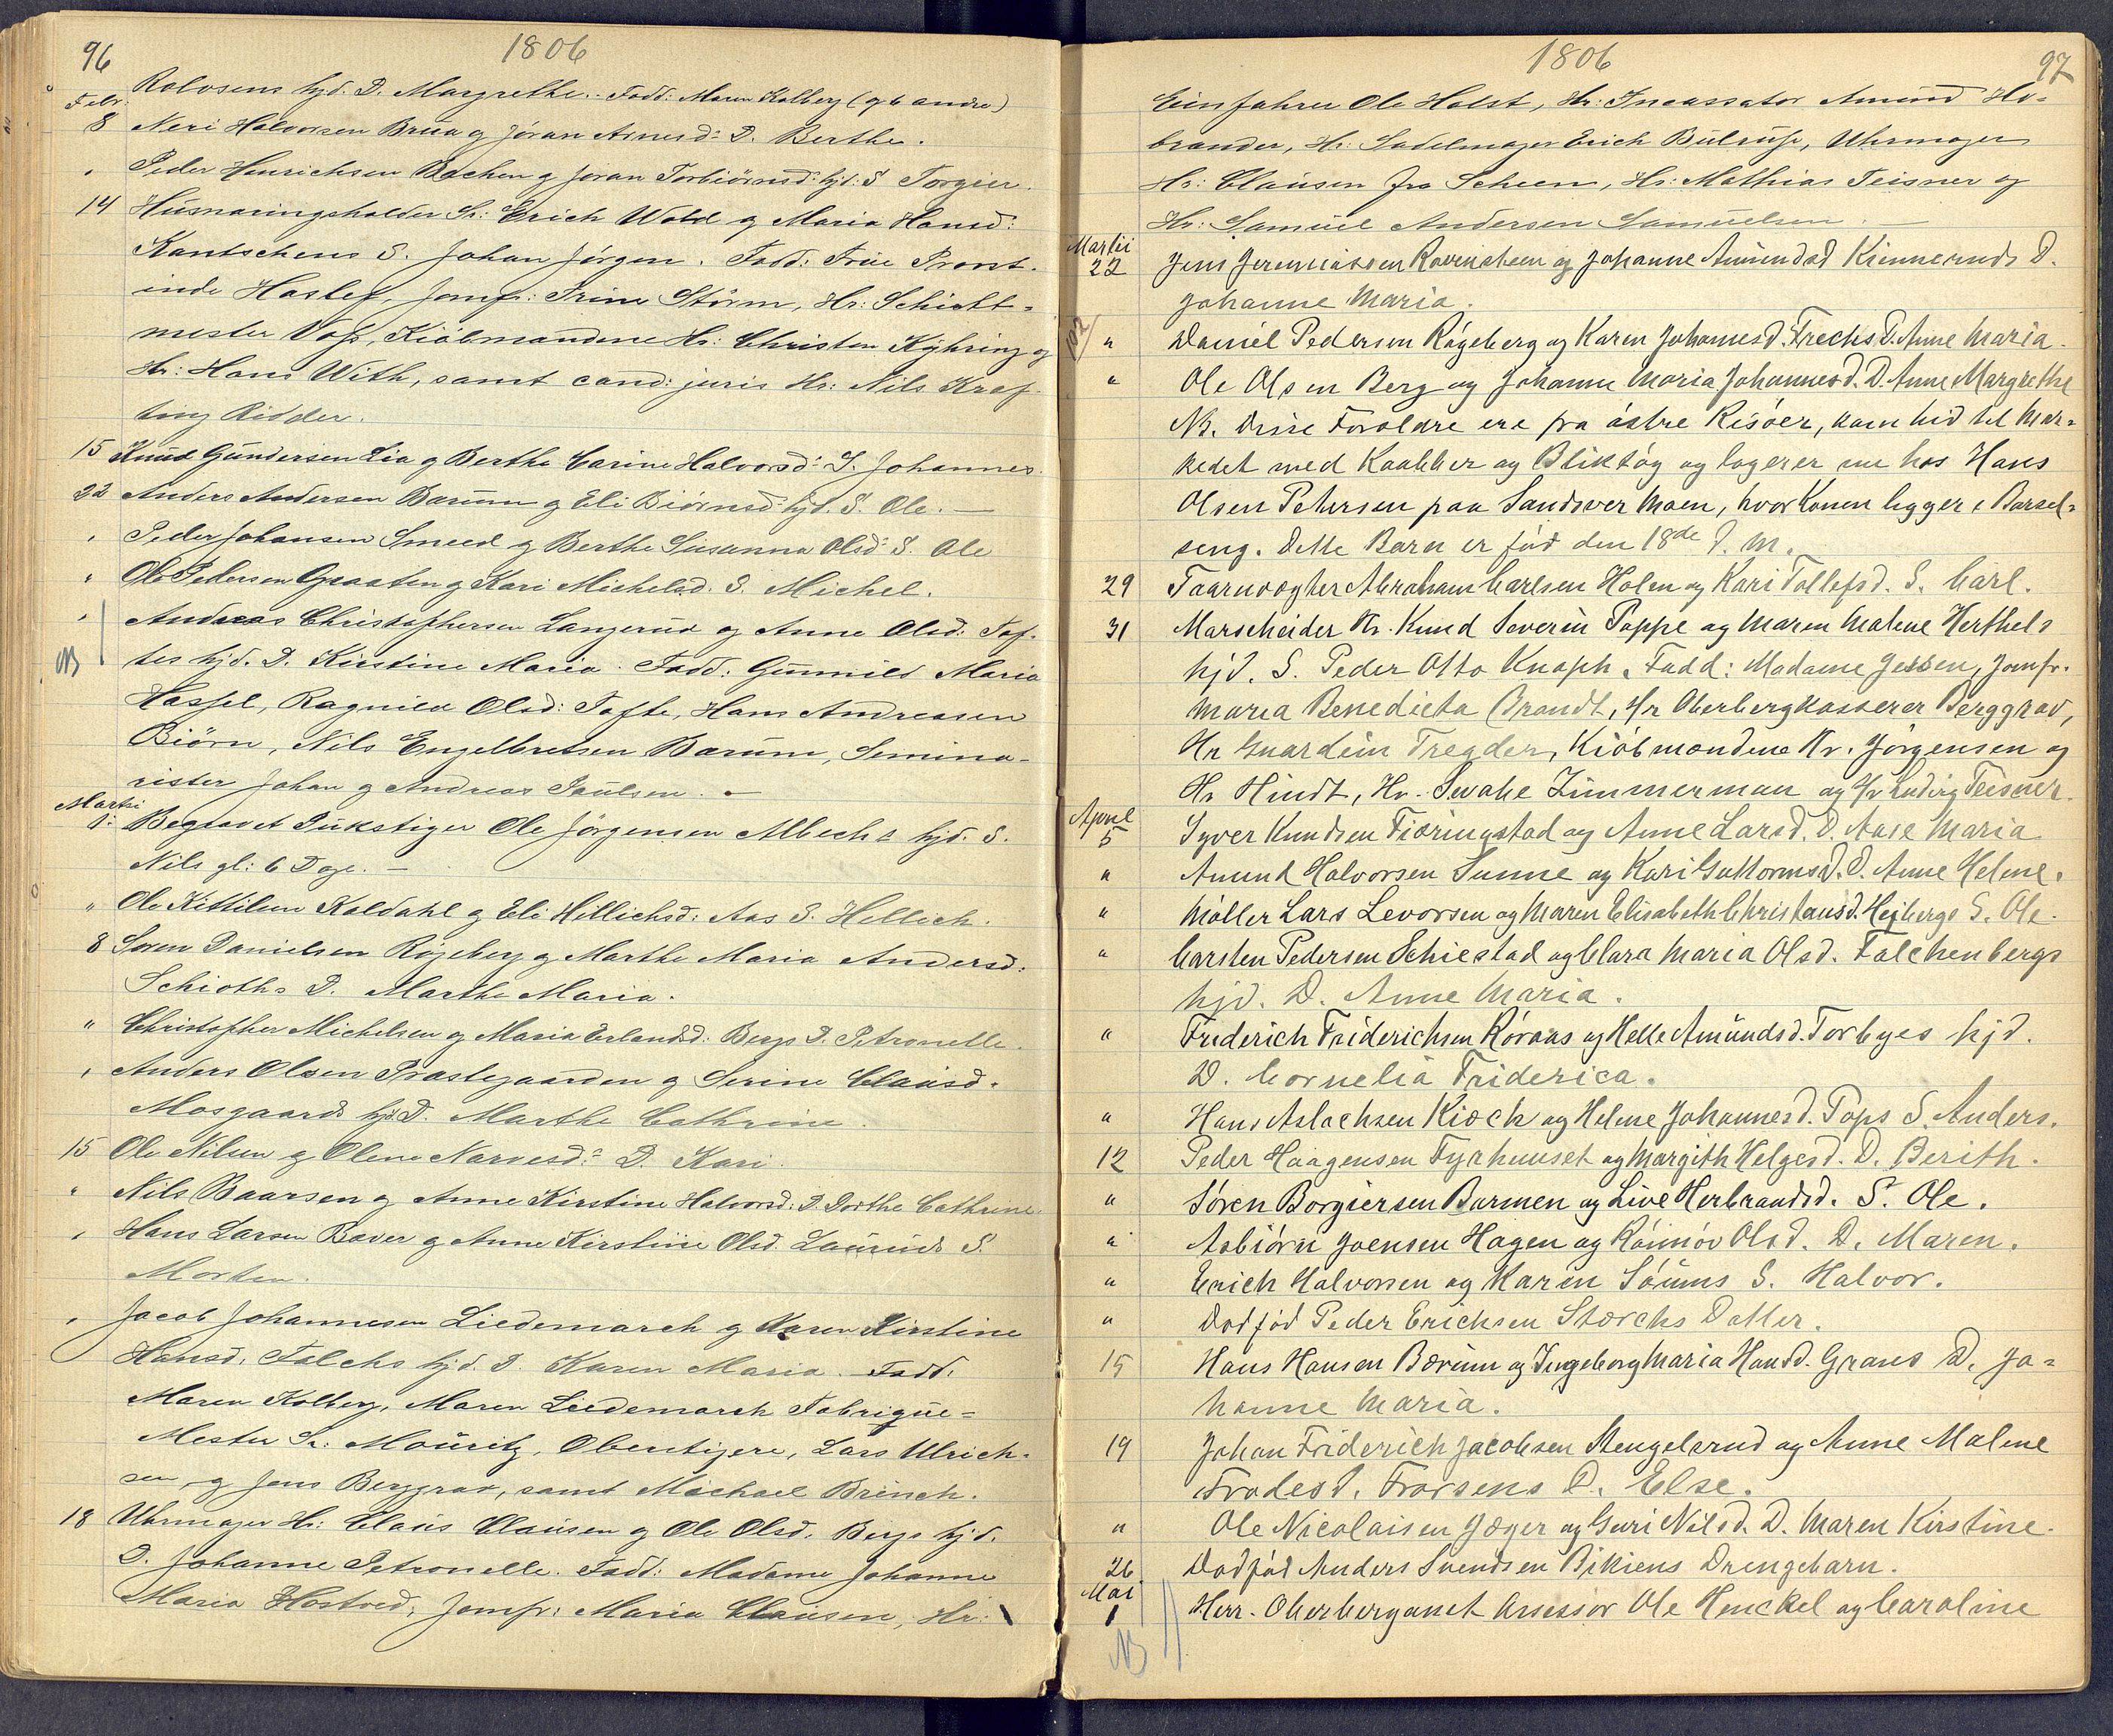 96
1806
Rolosens hjd. D. Margrethe. Fadd: Maren Kolberg (og 6 andre)
Febr.
8 Neri Halvorsen Brua og Jöran Arnesd: D. Berthe.
" Peder Henrichsen Bachen og Jöran Torbiörnsd: hjd: S Torgier.
14 Husnaringsholder Sr: Erich Wold og Maria Hansd:
Kantschens S. Johan Jörgen. Fadd: Frue Provst-
inde Haslef, Jomfr: Trine Störm, Hr: Schicht-
mester Voss, Kiöbmændene Hr: Christen Kyhring og
Hr: Hans With, samt cand: juris Hr: Nils Kraf-
ting Ridder.
15 Knud Gundersen Lia og Berthe Carine Halvorsd: S. Johannes.
22 Anders Andersen Bærum og Eli Biörnsd: hjd. S. Ole. —
" Peder Johansen Smeed og Berthe Susanna Olsd: S. Ole
" Ole Pedersen Graaten og Kari Michelsd. S. Michel.
" Andreas Christophersen Langerud og Anne Olsd: Tof-
NB tes hjd. D. Kirstine Maria. Fadd: Gunnild Maria
Hassel, Ragnild Olsd: Tofte, Hans Andreasen
Biörn, Nils Engelbretsen Bærum, Semina-
rister Johan og Andreas Paulsen. —
Martii
1: Begravet Pukstiger Ole Jörgensen Albechs hjd. S.
Nils gl: 6 Dage. —
" Ole Kittilsen Koldahl og Eli Hellichsd: Aas S. Hellich.
8 Soren Danielsen Røgeberg og Marthe Maria Andersd:
Schioths D. Marthe Maria.
" Christopher Michelsen og Maria Erlandsd: Bergs D. Petronelle.
" Anders Olsen Præstegaarden og Serine Clausd.
Mosgaards hjd. D. Marthe Cathrine.
15 Ole Nilsen og Olene Narvesd: D. Kari.
" Nils Baarsen og Anne Kirstine Halvorsd: D. Dorthe Cathrine.
" Hans Larsen Baver og Anne Kirstine Olsd. Lauruds S.
Morten.
" Jacob Johannesen Liedemarch og Karen Kirstine
Hansd: Falchs hjd. D. Karen Maria. Fadd.
Maren Kolberg, Maren Liedemarch Fabrique=
Mester Sr: Mouritz, Oberstigere, Lars Ulrich-
sen og Jens Berggrav, samt Michael Brinch.
18 Uhrmager Hr: Claus Clausen og Ole Olsd. Bergs hjd.
D. Johanne Petronelle. Fadd: Madame Johanne
Maria Hostved, Jomfr: Maria Clausen, Hr:
1806
97
Einfahrer Ole Holst, Hr: Incassator Amund Ho-
brander, Hr: Sadelmager Erich Bulrusp, Uhrmager
Hr: Clausen fra Scheen, Hr: Mathias Teisner og
Hr: Samuel Andersen Samuelsen. —
Martii
22 Jens Jeremiassen Ravensteen og Johanne Amundsd Kinneruds D.
Johanne Maria.
" Daniel Pedersen Rögeberg og Karen Johannesd. Frechs D. Anne Maria.
" Ole Olsen Berg og Johanne Maria Johannesd. D. Anne Margrethe
NB. Disse Forældre ere fra östre Risöer, kom hid til Mar-
kedet med Kaabber og Bliktög og logerer nu hos Hans
Olsen Petersen paa Sandsver Moen, hvor Konen ligger i Barsel-
seng. Dette Barn er föd den 18de d. M.
29 Taarnvogter Abraham Carlsen Holen og Kari Tollefsd. S. Carl.
31 Marscheider Hr. Knud Severin Poppe og Maren Malene Herthels
hjd. S. Peder Otto Knoph. Fadd: Madame Jessen, Jomfr.
Maria Benedicta Brandt, Hr Oberbergkasserer Berggrav,
Hr Guardein Tregder, Kiöbmændene Hr. Jörgensen og
Hr Hindt, Hr. Swahe Zimmerman og Hr Ludvig Teisner.
April
5 Syver Knudsen Fiæringstad og Anne Larsd. D. Aase Maria
" Amund Halvorsen Sunne og Kari Guttormsd. D. Anne Helene.
" Möller Lars Levorsen og Maren Elisabeth Christensd. Hejbergs S. Ole.
" Carsten Pedersen Schiestad og Clara Maria Olsd. Falchenbergs
hjd. D. Anne Maria.
" Friderich Friderichsen Röraas og Helle Amundsd. Torbyes hjd.
D. Cornelia Friderica.
" Hans Aslachsen Kioch og Helene Johannesd. Pops S. Anders.
12 Peder Haagensen Fyrhuuset og Margith Helgesd. D. Berith.
" Sören Borgiersen Burmen og Live Herbrandsd. S. Ole.
" Asbiörn Joensen Hagen og Rönnöv Olsd. D. Maren.
" Erich Halvorsen og Karen Söums S. Halvor.
" Dödföd Peder Erichsen Storchs Datter.
15 Hans Hansen Bærum og Ingeborg Maria Hansd. Graus D. Jo-
hanne Maria.
19 Johan Friderich Jacobsen Stengelsrud og Anne Malene
Frodesd. Frorsens D. Else.
" Ole Nicolaisen Jæger og Guri Nilsd. D. Maren Kirstine.
26 Dödföd Anders Svendsen Bikiens Drengebarn.
Mai
1 Herr. Oberbergamts Assessor Ole Henckel og Caroline
NB